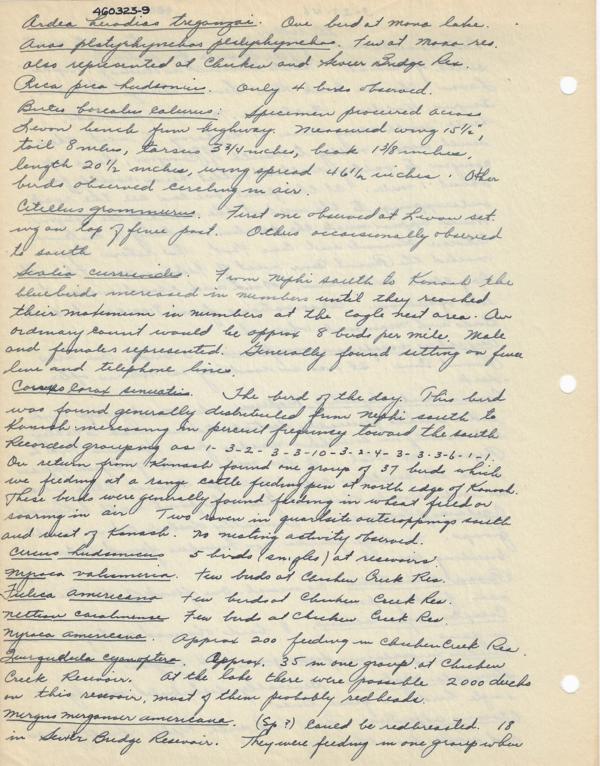 460323-9
Ardea herodias treganzai. One bird at mona lake.
Anas platyrhynchos platyrhynchos. Few at Mona res.
also represented at Chicken and Sevier Bridge Res.
Pica pica hudsonius. Only 4 birds observed.
Buteo borealis calurus: Specimen procured across
Levan bench from highway. Measured wing 15 1/2",
tail 8 inches, tarsus 3 3/4 inches, beak 1 3/8 inches,
length 20 1/2 inches, wing spread 46 1/2 inches. Other
birds observed circling in air.
Citellus grammurus. First one observed at Levan sitt-
ing on top of fence post. Others occasionally observed
to south
Sialia currucoides. From Nephi south to Kanosh the
bluebirds increased in numbers until they reached
their maximum in numbers at the eagle nest area. An
ordinary count would be approx 8 birds per mile. Male
and females represented. Generally found sitting on fence
line and telephone lines.
Corvus corax sinuatis. The bird of the day. This bird
was found generally distributed from Nephi south to
Kanosh increasing in percent frequency toward the south
Recorded grouping as 1-3-2-3-3-10-3-2-4-3-3-3-6-1-1.
On return from Kanosh found one group of 37 birds which
we feeding at a range cattle feeding pen at north edge of Kanosh.
These birds were generally found feeding in wheat field or
soaring in air. Two raven in quartsite outcroppings south
and west of Kanosh. No nesting activity observed.
Circus hudsonicus 5 birds (singles) at resevoirs
Nyroca valisineria. Few birds at Chicken Creek Res.
Fulica americana Few birds at Chicken Creek Res.
Nettion carolinense Few bird at Chicken Creek Res.
Nyroca americana. Approx 200 feeding in Chicken Creek Res.
Querquedula cyanoptera. Approx. 35 in one group at Chicken
Creek Resevoir. At the lake there were possible 2000 ducks
on this resevoir, most of them probably redheads.
Mergus merganser americana. (Sp ?) Could be redbreasted. 18
in Sevier Bridge Resevoir. They were feeding in one group when